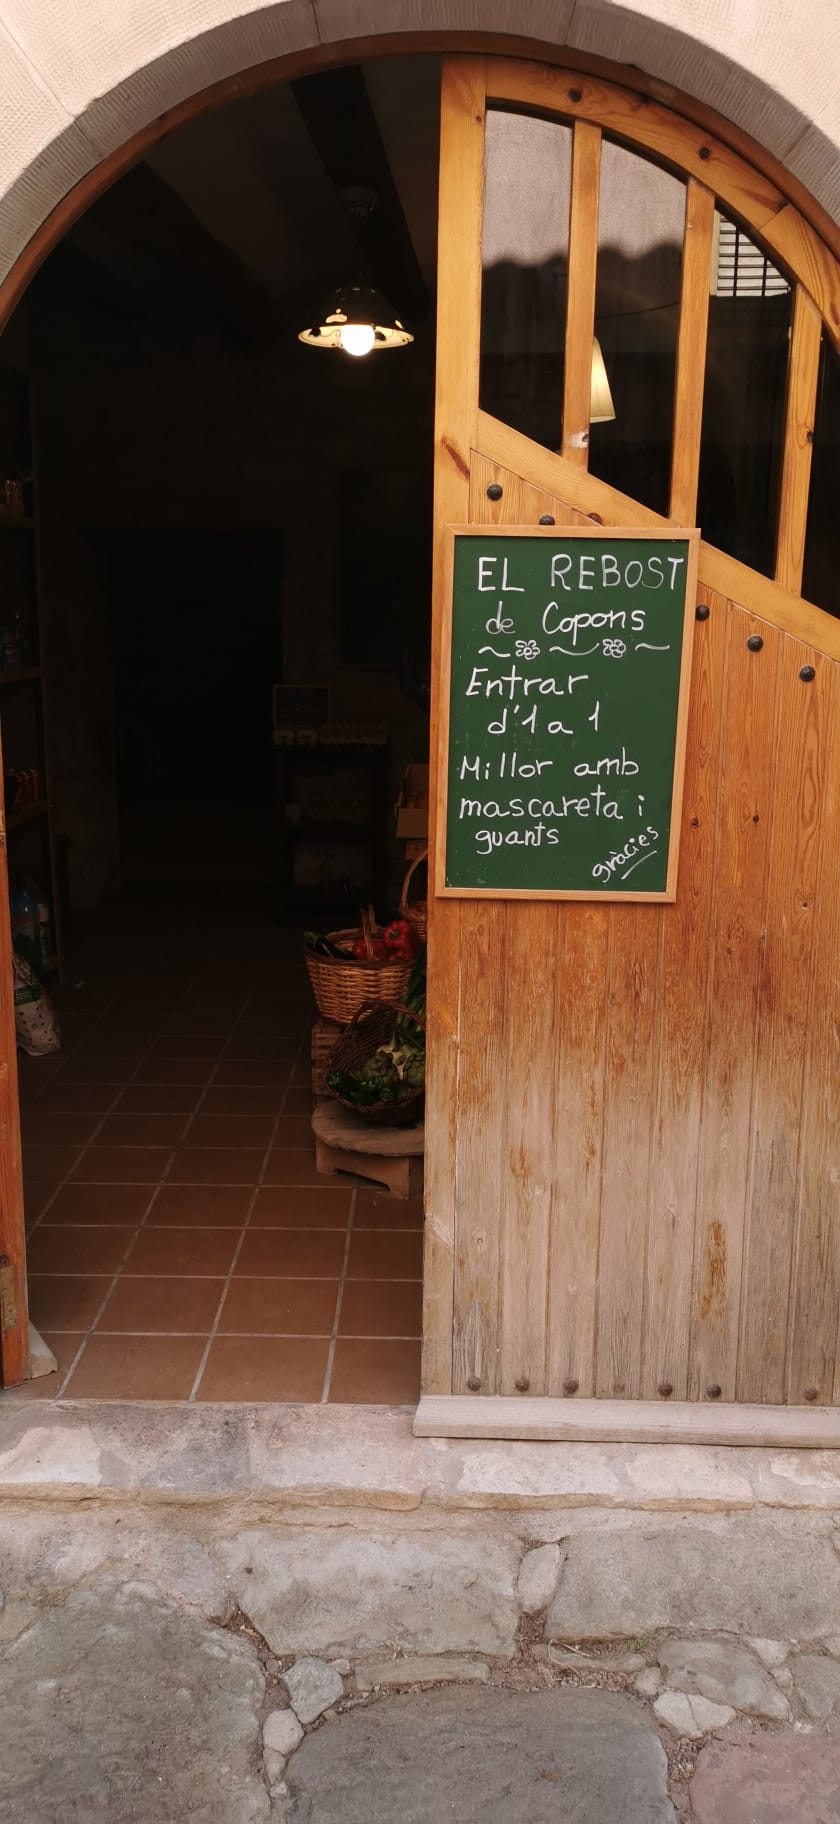 EL REBOST
de Copons
Entrar
d'1 a 1
Millor amb
mascareta i
guants
gràcies